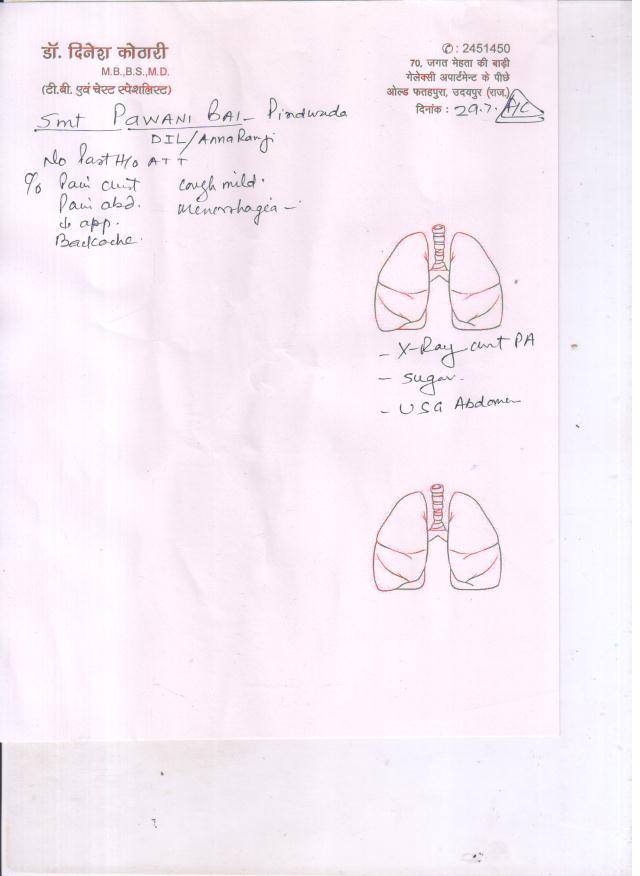 डॉ. दिनेश कोठारी
M.B.,B.S.,M.D.
(टी.बी. एवं चेस्ट स्पेशलिस्ट)
✆ : 2451450
70, जगत मेहता की बाड़ी
गेलेक्सी अपार्टमेन्ट के पीछे
ओल्ड फतहपुरा, उदयपुर (राज.)
दिनांक : 29.7. A/C
Smt PAWANI BAI - Pindwada
DIL/Annaramji
No Past H/o ATT
C/o Pain chest cough mild.
Pain abd. menorrhagia -
↓ app.
Backache.
- X-Ray chest PA
- Sugar.
- USG Abdomen